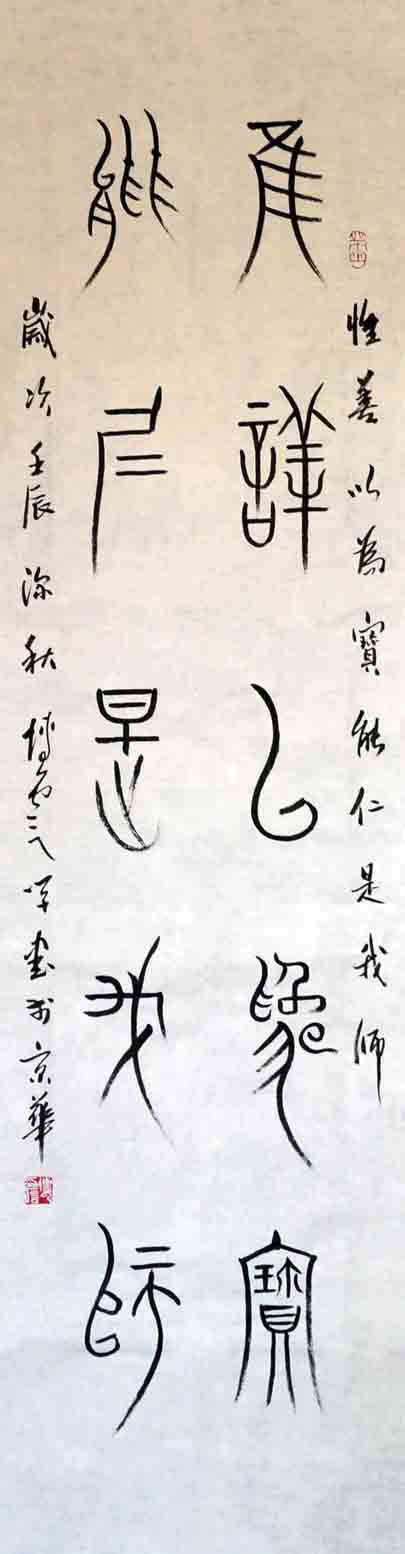 惟善以為寶能仁是我師
隹善以為寶
能仁是我師
歲次壬辰深秋書於京華